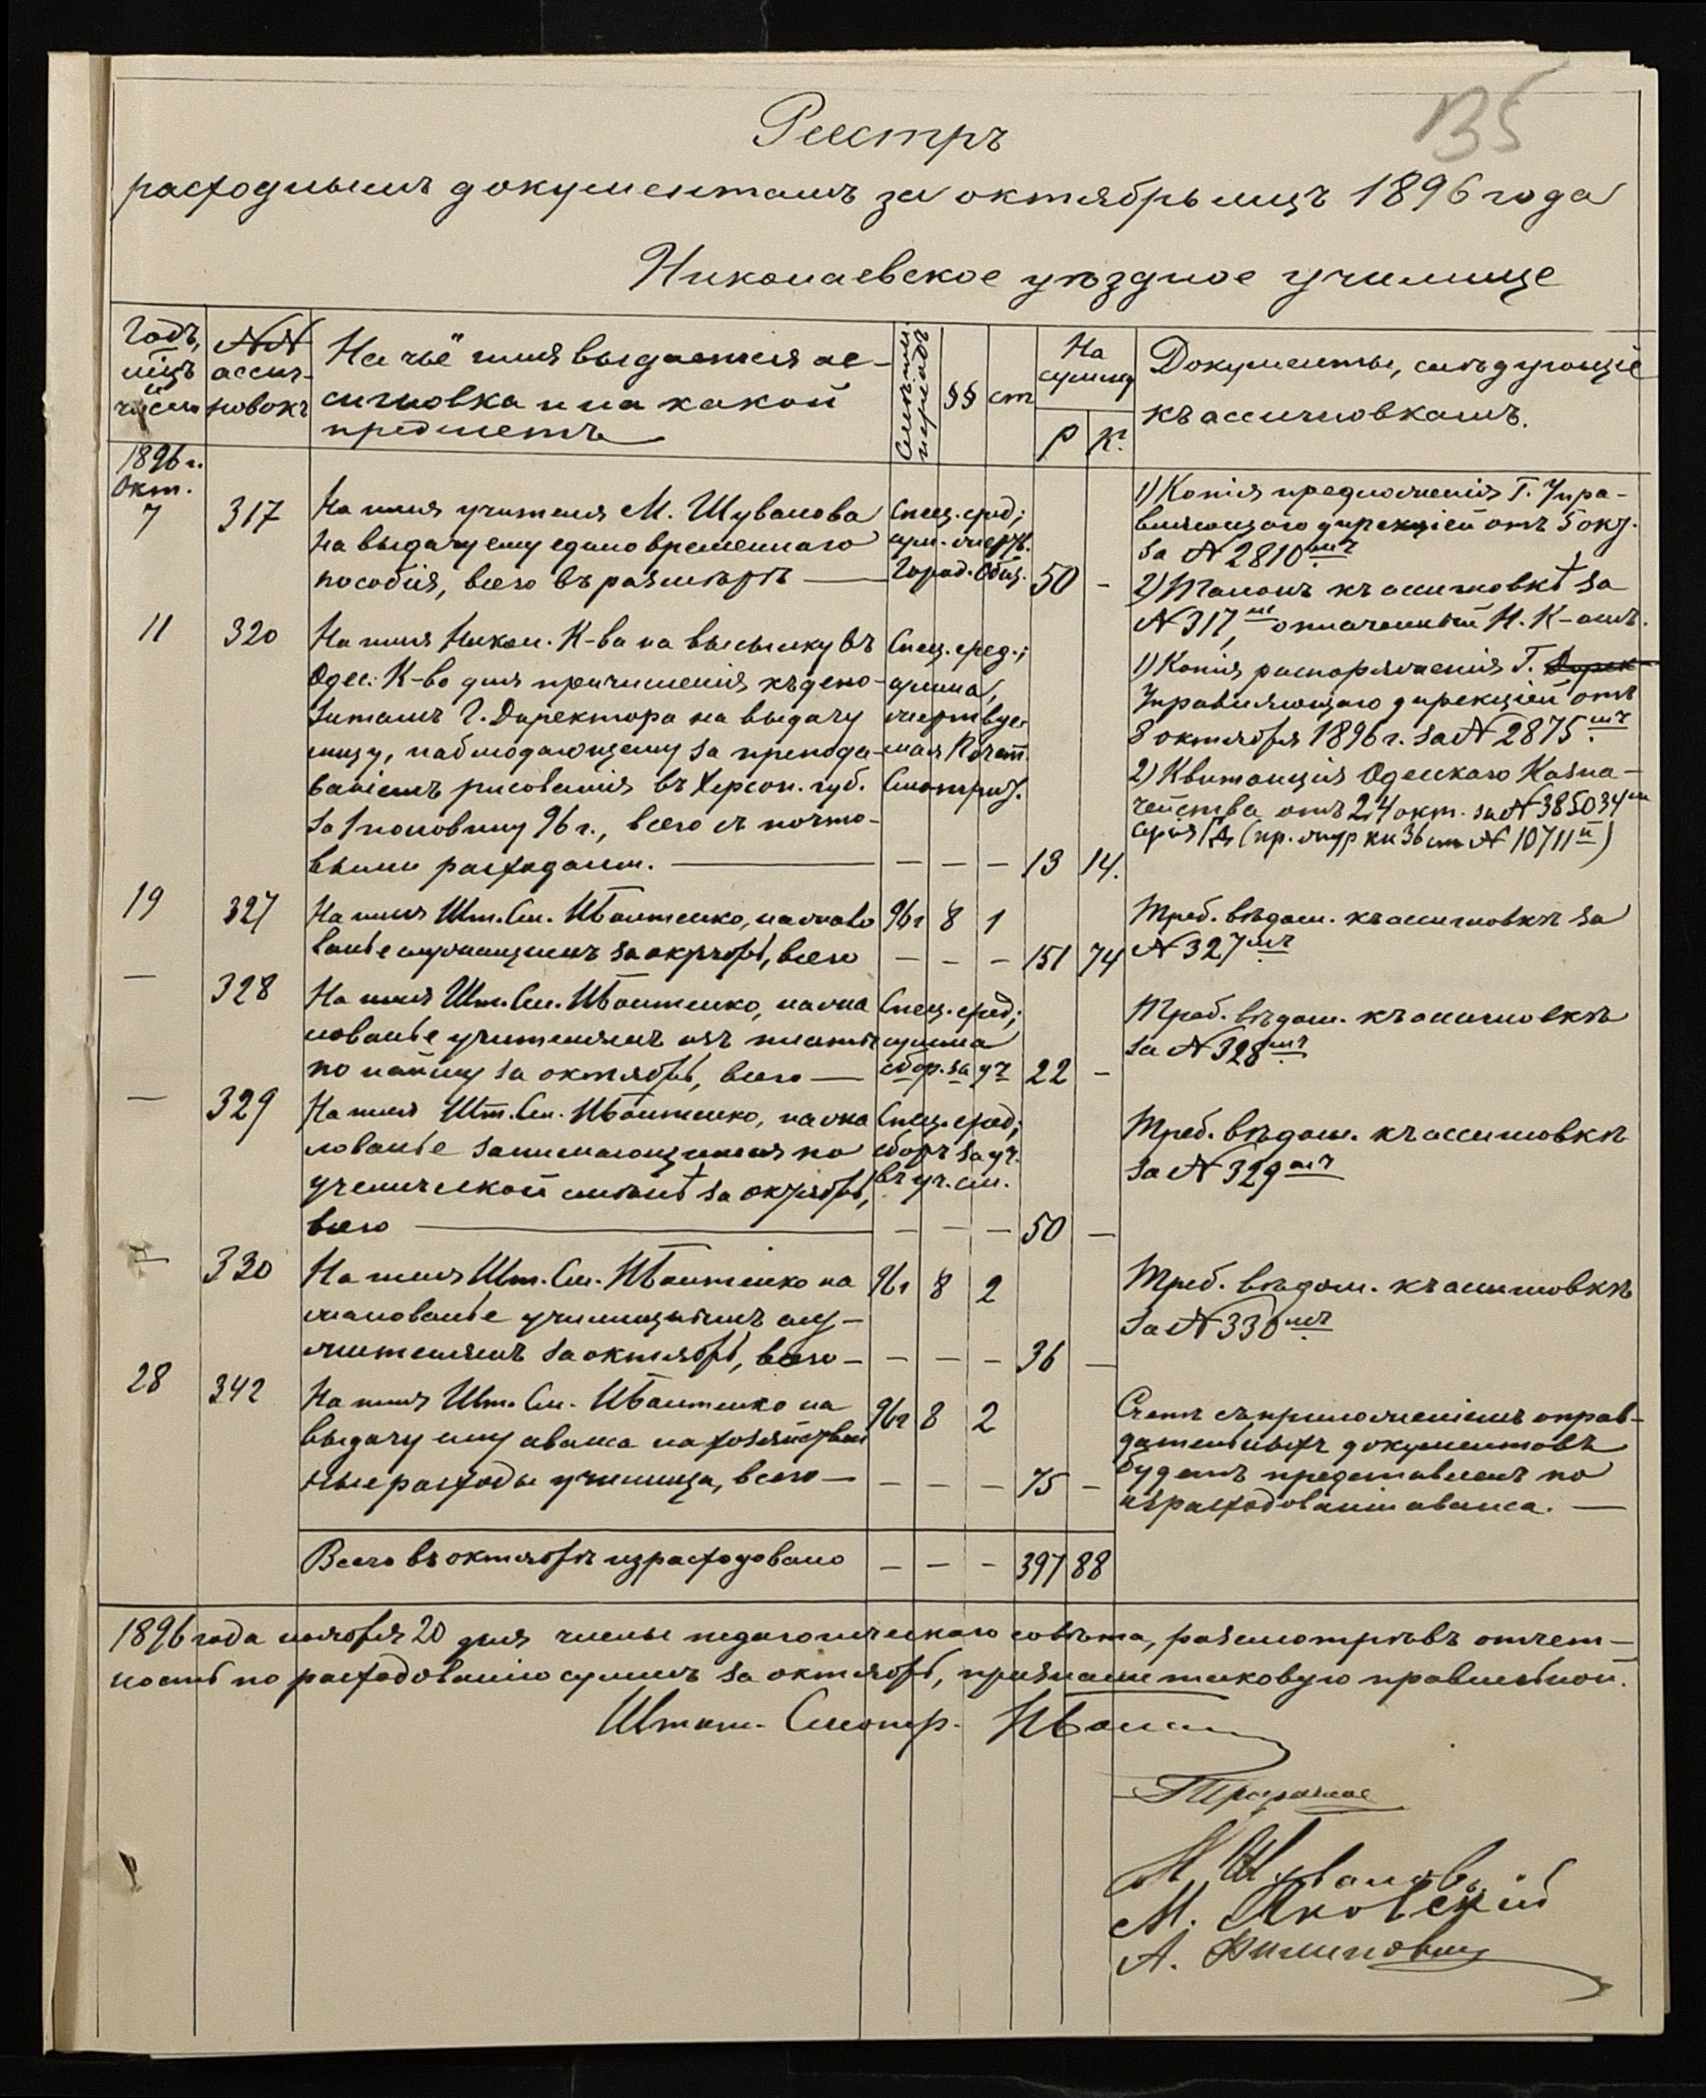 135
Реестръ
расходнымъ документамъ за октябрь мцъ 1896 года
Николаевское уѣздное училище
Годъ, мцъ и число
№№ ассигновокъ
На чьё имя выдается ас-
сигновка и на какой
предметъ
Смѣтный періодъ
§§
ст
На сумму
Р
К.
Документы, слѣдующіе
къ ассигновкамъ.
1896 г.
Окт.
7
317
На имя учителя М. Шувалова
на выдачу ему единовременнаго
пособія, всего въ размѣрѣ
Спец. сред;
сум. жертв.
Город. Общ.
50 -
1) Копія предложенія Г. Упра-
вляющаго дирекціей отъ 5 окт.
за № 2810мъ
2) Талонъ къ ассигновкѣ за
№ 317мъ, оплаченный Н. К-омъ.
11
320
На имя Никол. К-ва на высылку въ
Одес. К-во для причисленія къ депо-
зитамъ Г. Директора на выдачу
лицу, наблюдающему за препода-
ваніемъ рисованія въ Херсон. губ.
за 1 половину 96 г., всего съ почто-
выми расходами.
Спец. сред.;
сумма,
жертвуе-
мая Почет.
Смотрит.
— — — 13 14.
1) Копія распоряженія Г. Дирек-
Управляющаго дирекціей отъ
8 октября 1896 г. за № 2875мъ.
2) Квитанція Одесскаго Казна-
чейства отъ 24 окт. за № 385034мъ
серія (пр. жур кн 36 ст № 10711й)
19
327
На имя Шт. См. Ивантенко, на жало
ванье служащимъ за октябрь, всего
96 г 8 1
— — — 151 74
Треб. вѣдом. къ ассигновкѣ за
№ 327мъ
—
328
На имя Шт. См. Ивантенко, на жа
лованье учителямъ изъ платы
по найму за октябрь, всего —
Спец. сред;
сумма
сбор. за уч
22 -
Треб. вѣдом. къ ассигновкѣ
за № 328мъ
—
329
На имя Шт. См. Ивантенко, на жа
лованье занимающимся по
ученической смѣнѣ за октябрь,
всего
Спец. сред;
сборъ за уч.
въ уч. см.
— — — 50 —
Треб. вѣдом. къ ассигновкѣ
за № 329мъ
—
330
На имя Шт. См. Ивантенко на
жалованье училищнымъ слу-
жителямъ за октябрь, всего —
96 г 8 2
— — — 36 —
Треб. вѣдом. къ ассигновкѣ
за № 330мъ
28
342
На имя Шт. См. Ивантенко на
выдачу ему аванса на хозяйствен
ные расходы училища, всего —
96 г 8 2
— — — 75 -
Счетъ съ приложеніемъ оправ-
дательныхъ документовъ
будетъ представленъ по
израсходованіи аванса. —
Всего въ октябрѣ израсходовано — — — 397 88
1896 года ноября 20 дня члены педагогическаго совѣта, размотрѣвъ отчет-
ность по расходованію суммъ за октябрь, признали таковую правильной.
Штат. Смотр. Иван
М. Шуваловъ
М. Яковскій
А. Филиповичъ